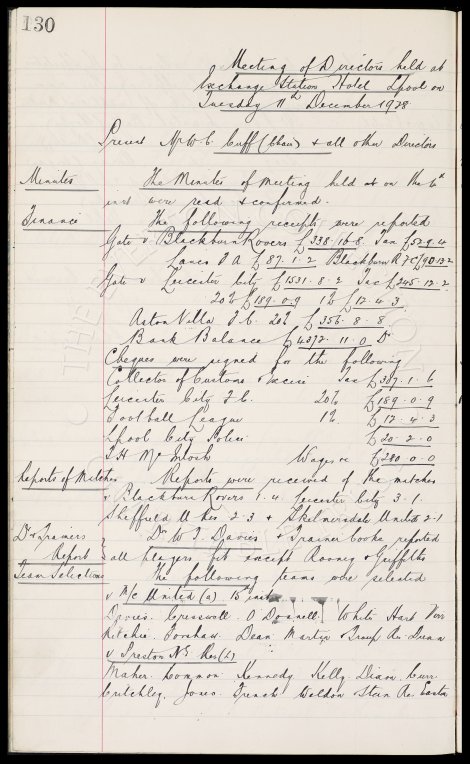 130
Meeting of Directors held at
Exchange Station Hotel Lpool on
Tuesday 11th December 1928
Present Mr W. C. Cuff (Chair) & all other Directors
Minutes The Minutes of meeting held at on the 6th
inst were read & confirmed.
Finance The following receipts were reported
Gate v Blackburn Rovers £338.16.8 Tax £52.9.4
Lancs F A £87.1.2 Blackburn R. F C £90.13.2
Gate v Leicester City £1531.8.2 Tax £245.12.2
20% £189.0.9 1% £12.4.3
Aston Villa F.C. 20% £356.8.8
Bank Balance £4372.11.0 Dr
Cheques were signed for the following
Collector of Customs & Excise Tax £387.1.6
Leicester City F.C. 20% £189.0.9
Football League 1% £12.4.3
Lpool City Police £20.2.0
T. H. McIntosh Wages &c £280.0.0
Reports of Matches Reports were received of the matches
v Blackburn Rovers 1.4. Leicester City 3.1.
Sheffield U Res 2.3 & Skelmersdale United 2-1
Dr & Trainers Dr W. J. Davies & Trainer Cooke reported
Report all players fit except Rooney & Griffiths
Team Selections The following teams were selected
v M/c United (a) 15 inst
Davies. Cresswell. O'Donnell. White Hart Virr
Ritchie. Forshaw. Dean Martin Troup Re. Dunn
v Preston N E Res (h)
Maher. Common. Kennedy Kelly. Dixon. Curr
Critchley. Jones. French Weldon Stein Re. Easton